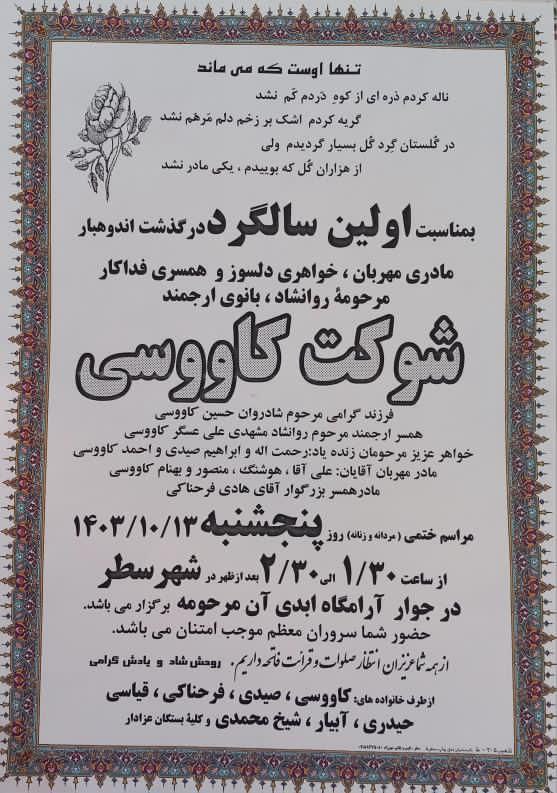 تنها اوست که می ماند
ناله کردم ذره ای از کوهِ دَردم کَم نشد
گریه کردم اشک بر زخم دلم مَرهَم نشد
در گُلستان گِرد گُل بسیار گردیدم ولی
از هزاران گُل که بوییدم ، یکی مادر نشد
بمناسبت اولین سالگرد درگذشت اندوهبار
مادری مهربان ، خواهری دلسوز و همسری فداکار
مرحومهٔ روانشاد ، بانوی ارجمند
شوکت کاووسی
فرزند گرامی مرحوم شادروان حسین کاووسی
همسر ارجمند مرحوم روانشاد مشهدی علی عسگر کاووسی
خواهر عزیز مرحومان زنده یاد: رحمت اله و ابراهیم صیدی و احمد کاووسی
مادر مهربان آقایان: علی آقا ، هوشنگ ، منصور و بهنام کاووسی
مادرهمسر بزرگوار آقای هادی فرحناکی
مراسم ختمی (مردانه و زنانه) روز پنجشنبه ۱۴۰۳/۱۰/۱۳
از ساعت ۱/۳۰ الی ۲/۳۰ بعد از ظهر در شهر سطر
در جوار آرامگاه ابدی آن مرحومه برگزار می باشد.
حضور شما سروران معظم موجب امتنان می باشد.
از همه شما عزیزان انتظار صلوات و قرائت فاتحه داریم. روحش شاد و یادش گرامی
از طرف خانواده های: کاووسی ، صیدی ، فرحناکی ، قیاسی
حیدری ، آبیار ، شیخ محمدی و کلیهٔ بستگان عزادار